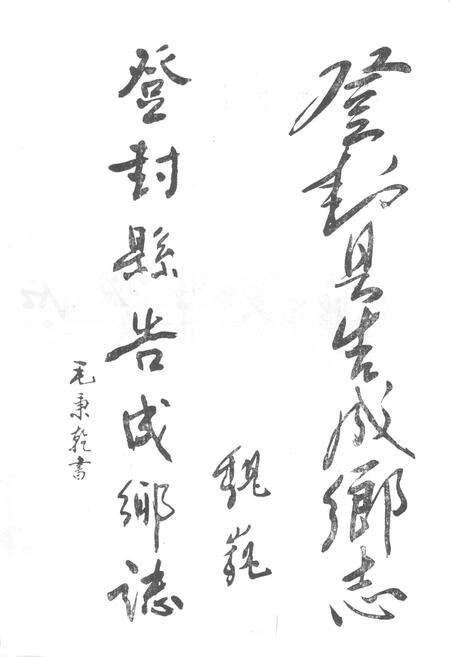 登封县告成鄉志
魏巍
登封縣告成鄉誌
毛秉乾書